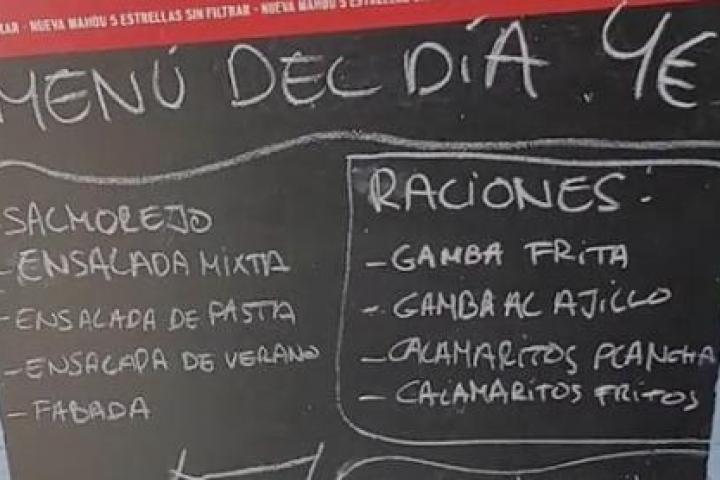 KAR - NUEVA MAHOU 5 ESTRELLAS SIN FILTRAR - NUEVA MAHOU 5 ESTRELLAS
MENÚ DEL DÍA. 4€
SALMOREJO
- ENSALADA MIXTA
- ENSALADA DE PASTA
- ENSALADA DE VERANO
- FABADA
RACIONES:
- GAMBA FRITA
- GAMBA AL AJILLO
- CALAMARITOS PLANCHA
- CALAMARITOS FRITOS